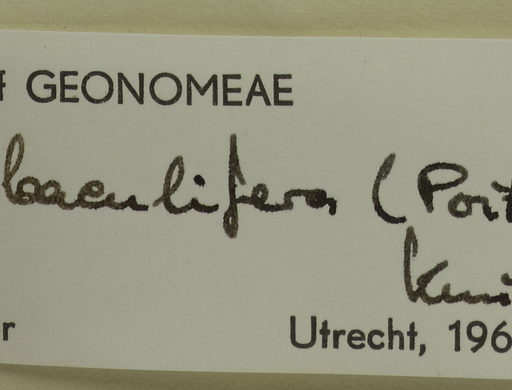 f GEONOMEAE
baculifera (Poit
Kun
r Utrecht, 196